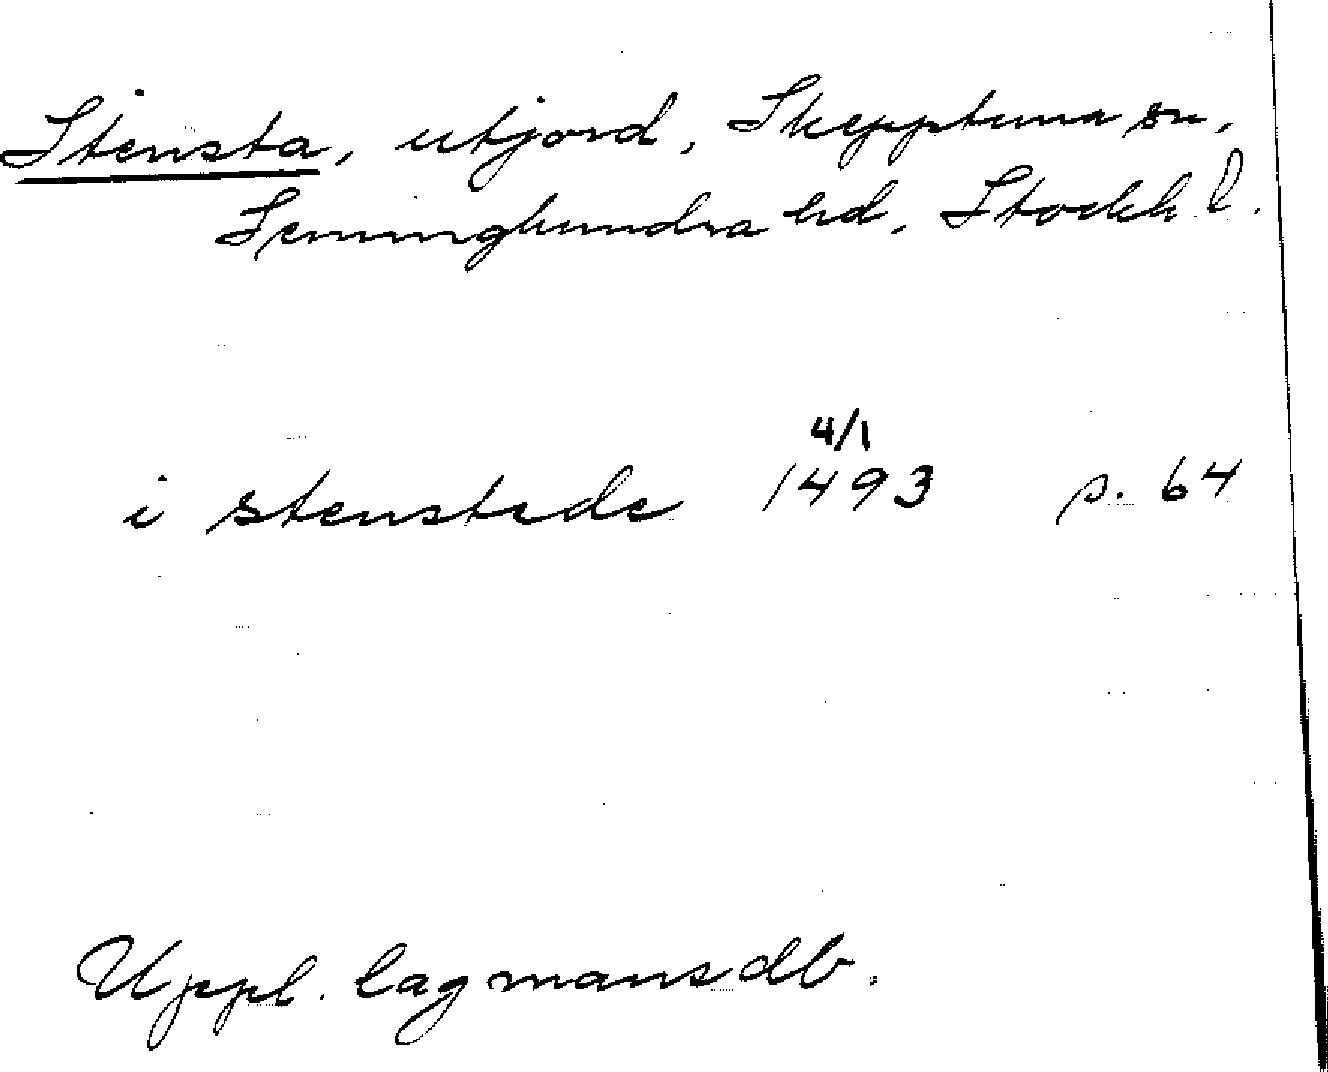 Stensta, utjord, Skepptuna sn,
Seminghundra hd, Stockh. l.
4/1
i stenstede 1493 s. 64
Uppl. lagmansdb.